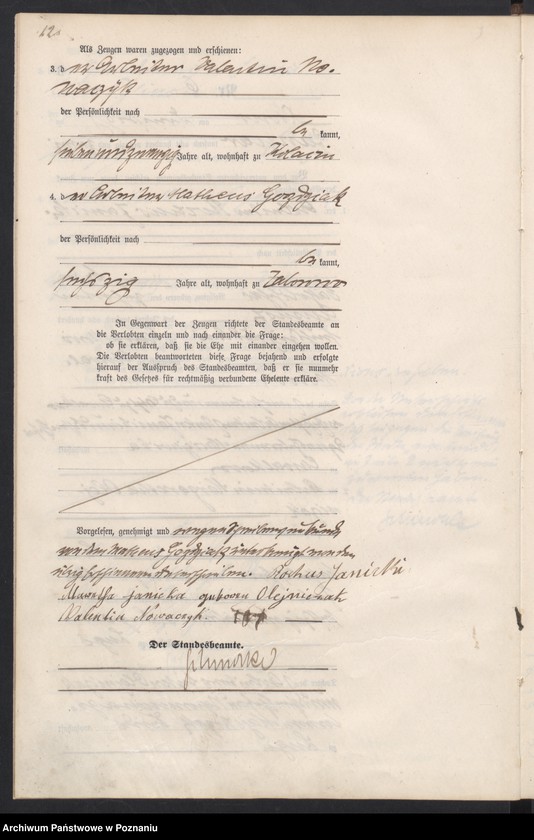 12
Als Zeugen waren zugezogen und erschienen:
3. der Arbeiter Valentin No-
waczyk
der Persönlichkeit nach
be kannt,
siebenundzwanzig Jahre alt, wohnhaft zu
4. der Arbeiter Matheus Gozdziak
der Persönlichkeit nach
be kannt,
sechszig Jahre alt, wohnhaft zu
In Gegenwart der Zeugen richtete der Standesbeamte an
die Verlobten einzeln und nach einander die Frage:
ob sie erklären, daß sie die Ehe mit einander eingehen wollen.
Die Verlobten beantworteten diese Frage bejahend und erfolgte
hierauf der Ausspruch des Standesbeamten, daß er sie nunmehr
kraft des Gesetzes für rechtmäßig verbundene Eheleute erkläre.
Vorgelesen, genehmigt und wegen Schreibensunkunde
von dem Matheus Gozdziak unterkreuzt von den
übrigen unterschrieben. Rochus Janicki
janicka geboren Olejniczak
Valentin Nowaczyk. +++
Der Standesbeamte.
Archiwum Państwowe w Poznaniu